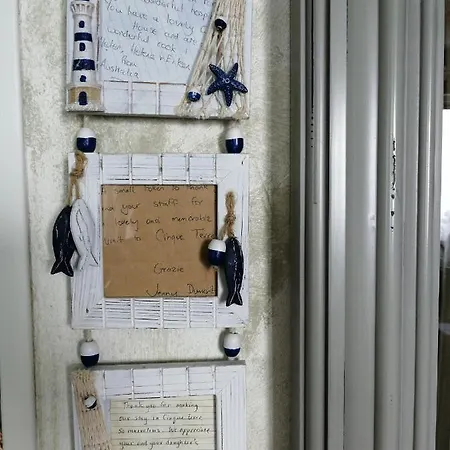 wonderful
You have a lovely
House and are
wonderful cook
Helen, Helena
Australia
small token to thank
and your staff for
lovely and memorable
visit to Cinque Terre
Grazie
Thank you for making
our stay in Cinque Terre
so marvelous. We appreciate
your and your daughter's